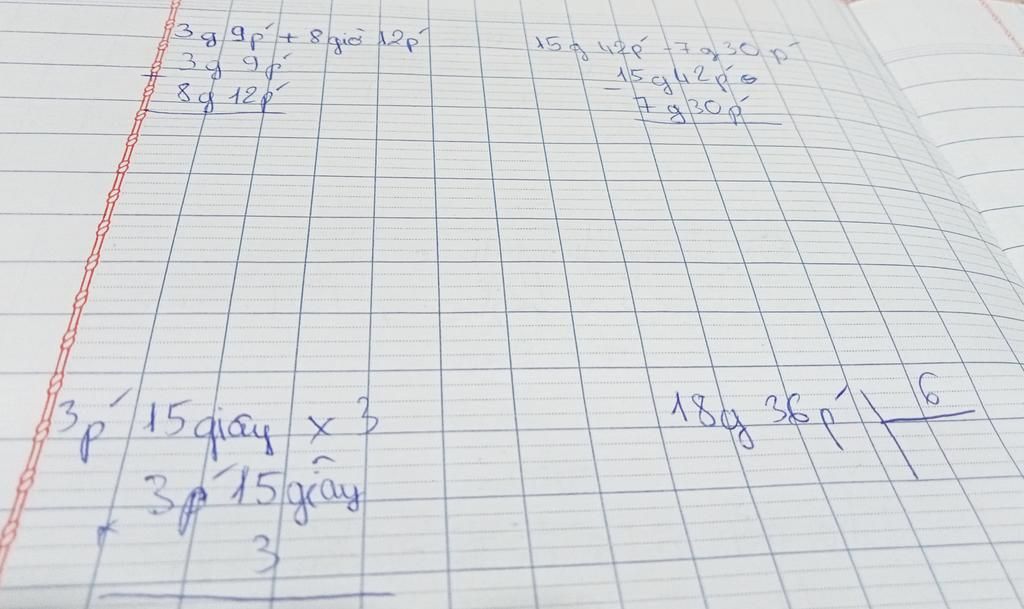 3g 9p' + 8 giờ 12p'
3g 9p'
+
8g 12p'
15g 42p' - 7g30p'
15g42p'
-
7g30p'
3p' 15 giây x 3
3p' 15 giây
x
3
18g 36p' 6